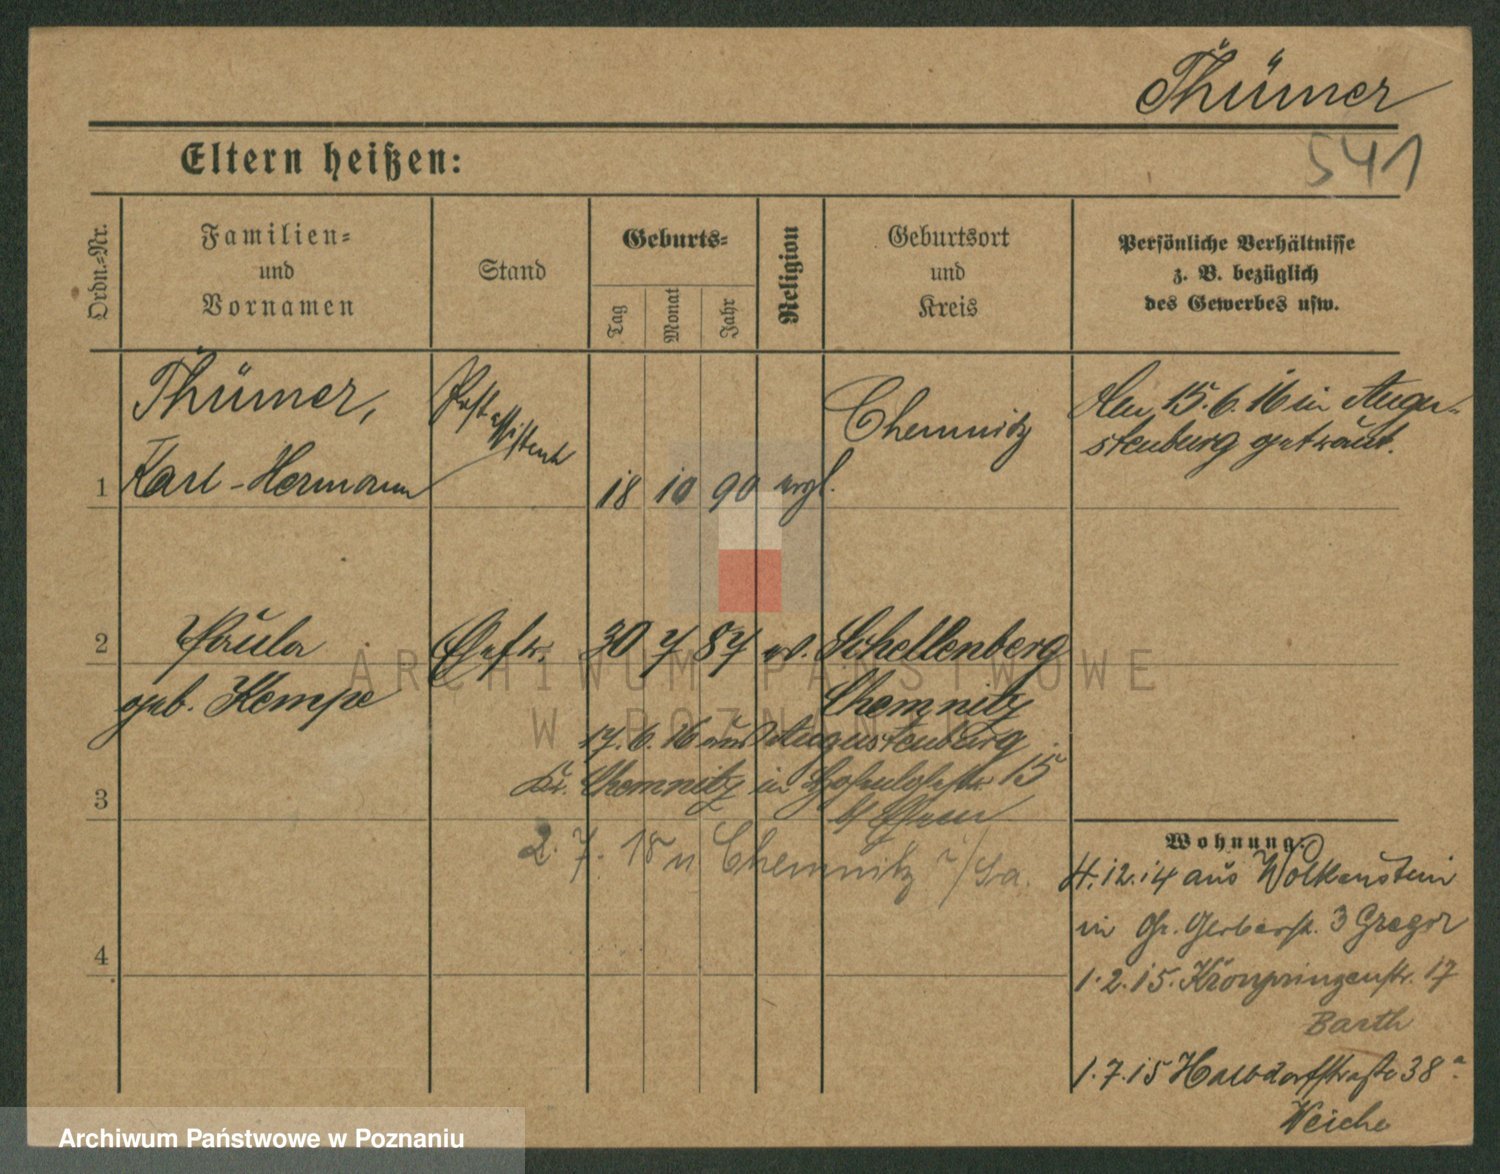 Thümer
541
Eltern heißen:
Ordn.-Nr.
Familien-
und
Vornamen
Stand
Geburts-
Tag
Monat
Jahr
Religion
Geburtsort
und
Kreis
Persönliche Verhältnisse
z. B. bezüglich
des Gewerbes usw.
1
Thümer,
Karl-Hermann
Postassistent
18 10 90 evgl.
Chemnitz
Am 15.6.16 in Augu-
stenburg getraut.
2
Paula
geb. Kempe
Ehefr.
30 7 87 ev.
Schellenberg
Chemnitz
17.6.16 aus Augustenburg
Kr. Chemnitz in 15
3
2.7.18 n Chemnitz i/Sa.
4
Wohnung:
4.12.14 aus Wolkenstein
in Gr. Gerberstr. 3 Gregor
1.2.15. Kronprinzenstr. 17
Barth
1.7.15 Halbdorfstraße 38a.
Weiche
ARCHIWUM PAŃSTWOWE
W POZNANIU
Archiwum Państwowe w Poznaniu